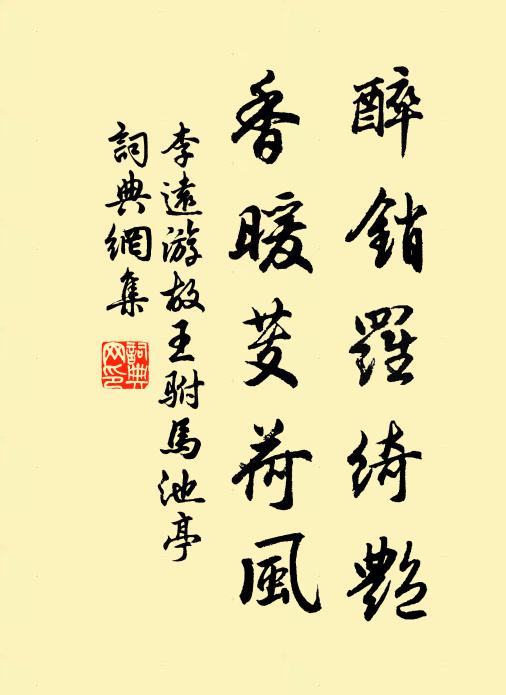 醉銷羅綺艷
香暖芰荷風
李遠游故王駙馬池亭
詞典網集
詞典網印